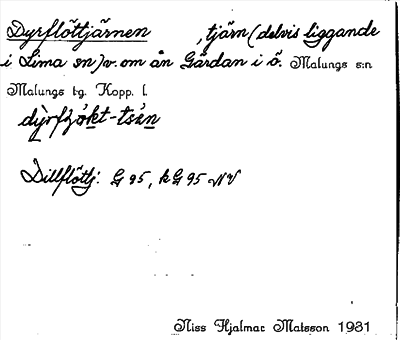 Dyrflöttjärnen , tjärn (delvis liggande
i Lima sn) v. om ån Gärdan i ö. Malungs s:n
Malungs tg. Kopp. l.
Dillflöttj: G 95, kG 95 NV
Niss Hjalmar Matsson 1931